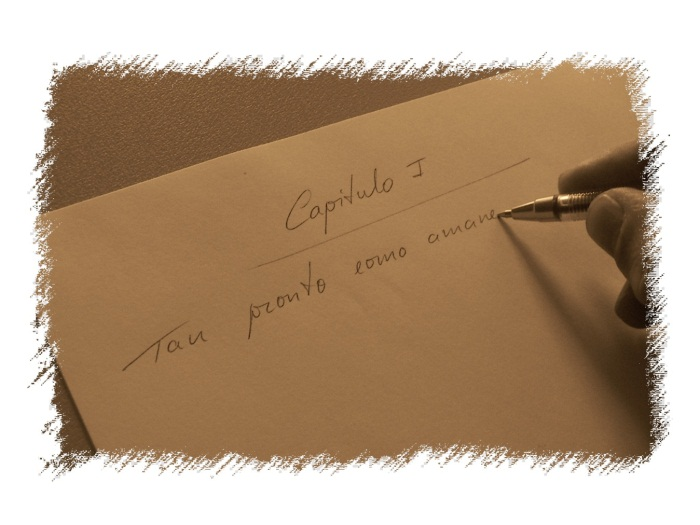 Capitulo I
Tan pronto como amane